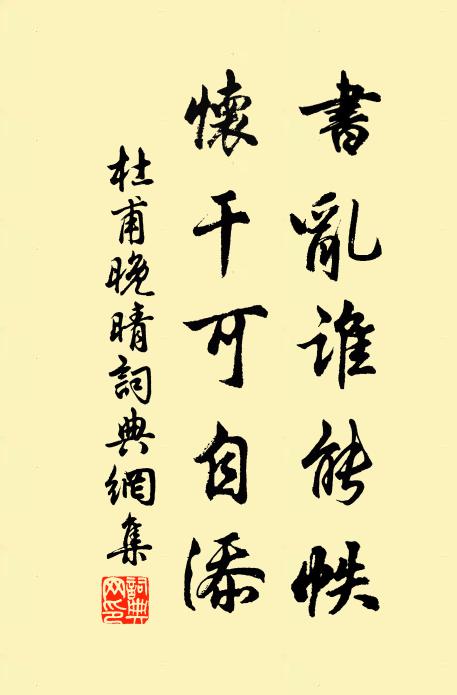 書亂誰能帙
懷干可自添
杜甫晚晴詞典網集
詞典網印